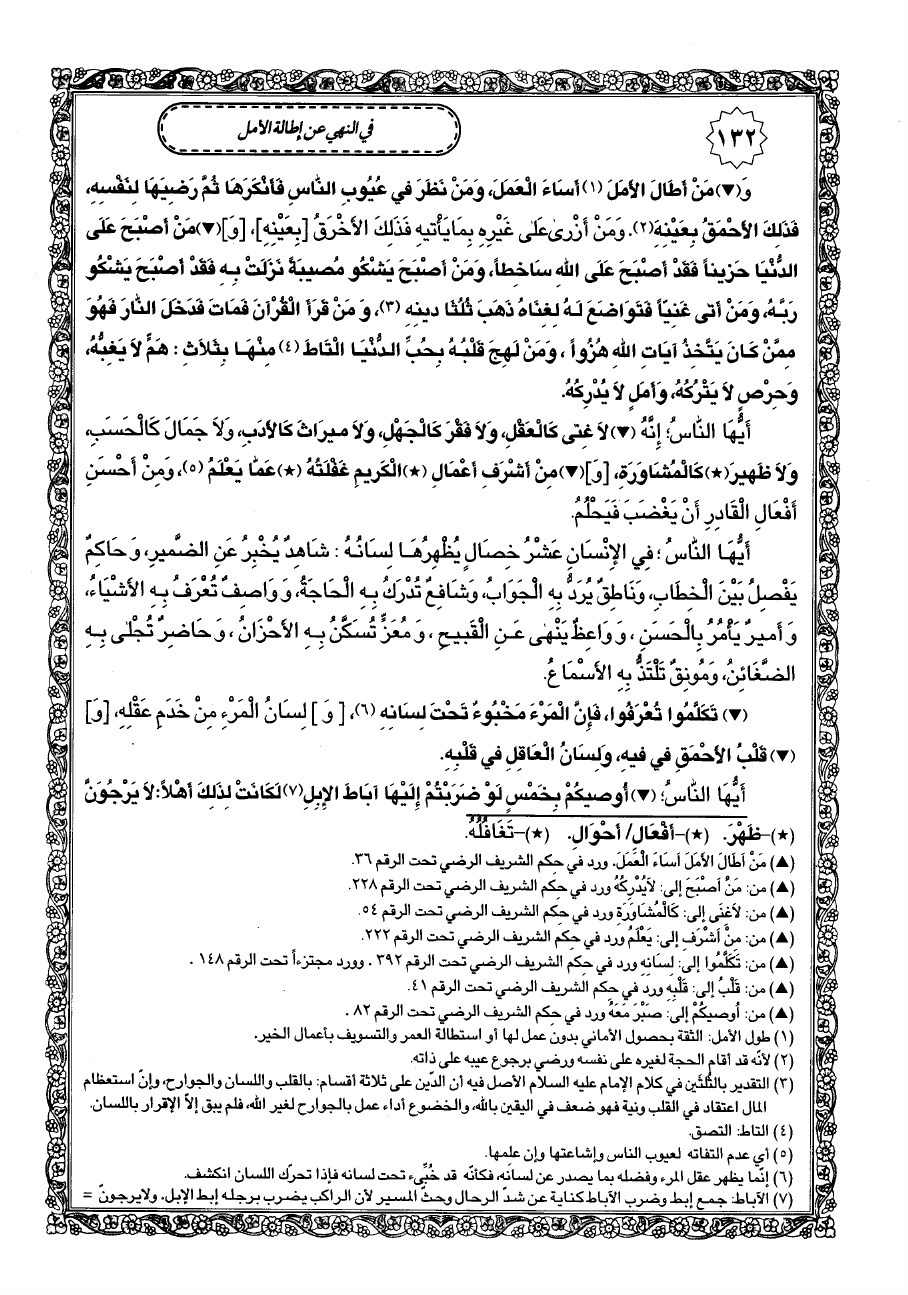 في النهي عن إطالة الأمل
١٣٢
وَ(▼)مَنْ أَطَالَ الأَمَلَ (١) أَسَاءَ الْعَمَلَ، وَمَنْ نَظَرَ في عُيُوبِ النَّاسِ فَأَنْكَرَهَا ثُمَّ رَضِيَهَا لِنَفْسِهِ،
فَذَلِكَ الأَحْمَقُ بِعَيْنِهِ(٢). وَمَنْ أَزْرىٰ عَلىٰ غَيْرِهِ بِمَا يَأْتيهِ فَذَلِكَ الأَخْرَقُ [بِعَيْنِهِ]، [وَ](▼)مَنْ أَصْبَحَ عَلَى
الدُّنْيَا حَزيناً فَقَدْ أَصْبَحَ عَلَى اللهِ سَاخِطاً، وَمَنْ أَصْبَحَ يَشْكُو مُصيبَةً نَزَلَتْ بِهِ فَقَدْ أَصْبَحَ يَشْكُو
رَبَّهُ، وَمَنْ أَتى غَنِيّاً فَتَوَاضَعَ لَهُ لِغِنَاهُ ذَهَبَ ثُلُثَا دينِهِ (٣)، وَ مَنْ قَرَأَ الْقُرْآنَ فَمَاتَ فَدَخَلَ النَّارَ فَهُوَ
مِمَّنْ كَانَ يَتَّخِذُ آيَاتِ اللهِ هُزُواً ، وَمَنْ لَهِجَ قَلْبُهُ بِحُبِّ الدُّنْيَا الْتَاطَ (٤) مِنْهَا بِثَلاَثٍ : هَمٍّ لاَ يَغِبُّهُ،
وَحِرْصٍ لاَ يَتْرُكُهُ، وَأَمَلٍ لاَ يُدْرِكُهُ.
أَيُّهَا النَّاسُ؛ إِنَّهُ (▼)لاَ غِنى كَالْعَقْلِ، وَلاَ فَقْرَ كَالْجَهْلِ، وَلاَ ميرَاثَ كَالأَدَبِ، وَلاَ جَمَالَ كَالْحَسَبِ،
وَلاَ ظَهيرَ(★)كَالْمُشَاوَرَةِ، [وَ](▼)مِنْ أَشْرَفِ أَعْمَالِ (★)الْكَريمِ غَفْلَتُهُ (★)عَمَّا يَعْلَمُ (٥)، وَمِنْ أَحْسَنِ
أَفْعَالِ الْقَادِرِ أَنْ يَغْضَبَ فَيَحْلُمُ.
أَيُّهَا النَّاسُ ؛ في الإِنْسَانِ عَشْرُ خِصَالٍ يُظْهِرُهَا لِسَانُهُ : شَاهِدٌ يُخْبِرُ عَنِ الضَّميرِ، وَحَاكِمٌ
يَفْصِلُ بَيْنَ الْخِطَابِ، وَنَاطِقٌ يُرَدُّ بِهِ الْجَوَابُ، وَشَافِعٌ تُدْرَكُ بِهِ الْحَاجَةُ، وَوَاصِفٌ تُعْرَفُ بِهِ الأَشْيَاءُ،
وَ أَميرٌ يَأْمُرُ بِالْحَسَنِ ، وَوَاعِظٌ يَنْهى عَنِ الْقَبيحِ ، وَ مُعَزٍّ تُسَكَّنُ بِهِ الأَحْزَانُ ، وَ حَاضِرٌ تُجْلى بِهِ
الضَّغَائِنُ، وَمُونِقٌ تَلْتَذُّ بِهِ الأَسْمَاعُ.
(▼) تَكَلَّمُوا تُعْرَفُوا، فَإِنَّ الْمَرْءَ مَخْبُوءٌ تَحْتَ لِسَانِهِ (٦)، [ وَ ] لِسَانُ الْمَرْءِ مِنْ خَدَمِ عَقْلِهِ، [وَ]
(▼) قَلْبُ الأَحْمَقِ في فيهِ، وَلِسَانُ الْعَاقِلِ في قَلْبِهِ.
أَيُّهَا النَّاسُ؛ (▼) أُوصيكُمْ بِخَمْسٍ لَوْ ضَرَبْتُمْ إِلَيْهَا آبَاطَ الإِبِلِ(٧) لَكَانَتْ لِذَلِكَ أَهْلاً: لاَ يَرْجُوَنَّ
(★)-ظَهْرَ. (★)-أَفْعَالِ/ أَحْوَالِ. (★)-تَغَافُلُهُ.
(▲) مَنْ أَطَالَ الأَمَلَ أَسَاءَ الْعَمَلَ. ورد في حكم الشريف الرضي تحت الرقم ٣٦.
(▲) من: مَنْ أَصْبَحَ إلى: لاَيُدْرِكُهُ ورد في حكم الشريف الرضي تحت الرقم ٢٢٨.
(▲) من: لاَغنَى إلى: كَالْمُشَاوَرَةِ ورد في حكم الشريف الرضي تحت الرقم ٥٤.
(▲) من: مِنْ أَشْرَفِ إلى: يَعْلَمُ ورد في حكم الشريف الرضي تحت الرقم ٢٢٢.
(▲) من: تَكَلَّمُوا إلى: لسَانِهِ ورد في حكم الشريف الرضي تحت الرقم ٣٩٢ . وورد مجتزءاً تحت الرقم ١٤٨ .
(▲) من: قَلْبُ إلى: قَلْبِهِ ورد في حكم الشريف الرضي تحت الرقم ٤١.
(▲) من: أُوصيكُمْ إلى: صَبْرَ مَعَهُ ورد في حكم الشريف الرضي تحت الرقم ٨٢ .
(١) طول الأمل: الثقة بحصول الأماني بدون عمل لها أو استطالة العمر والتسويف بأعمال الخير.
(٢) لأنّه قد أقام الحجة لغيره على نفسه ورضي برجوع عيبه على ذاته.
(٣) التقدير بالثُّلثَين في كلام الإمام عليه السلام الأصل فيه أن الدّين على ثلاثة أقسام: بالقلب واللسان والجوارح، وإنّ استعظام
المال اعتقاد في القلب ونية فهو ضعف في اليقين بالله، والخضوع أداء عمل بالجوارح لغير الله، فلم يبق إلاّ الإقرار باللسان.
(٤) التاط: التصق.
(٥) أي عدم التفاته لعيوب الناس وإشاعتها وإن علمها.
(٦) إنّما يظهر عقل المرء وفضله بما يصدر عن لسانه، فكأنّه قد خُبِّىء تحت لسانه فإذا تحرّك اللسان انكشف.
(٧) الآباط: جمع إبط وضرب الآباط كناية عن شدّ الرحال وحثّ المسير لأن الراكب يضرب برجله إبط الإبل. ولايرجونّ =